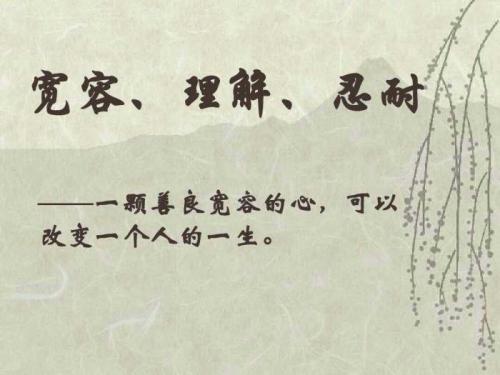 宽容、理解、忍耐
——一颗善良宽容的心，可以
改变一个人的一生。